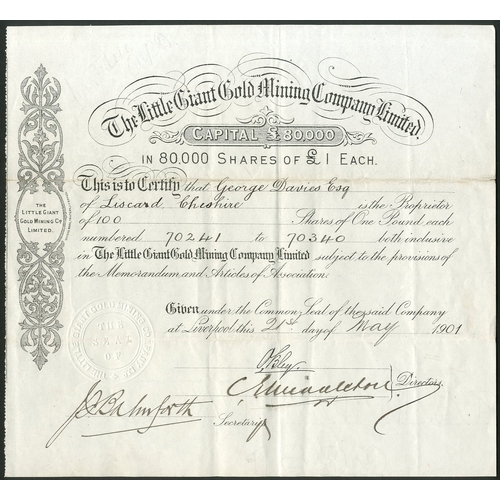 The Little Giant Gold Mining Company Limited.
CAPITAL £80,000
IN 80,000 SHARES OF £1 EACH.
This is to Certify that George Davies Esq
of Liscard Cheshire is the Proprietor
of 100 Shares of One Pound each
numbered 70241 to 70340 both inclusive
in The Little Giant Gold Mining Company Limited subject to the provisions of
the Memorandum and Articles of Association.
THE
LITTLE GIANT
GOLD MINING CO
LIMITED.
Given under the Common Seal of the said Company
at Liverpool this 21st day of May 1901
THE
SEAL
OF
THE LITTLE GIANT GOLD MINING COMPANY LIMITED
C E Middleton
Directors.
Secretary